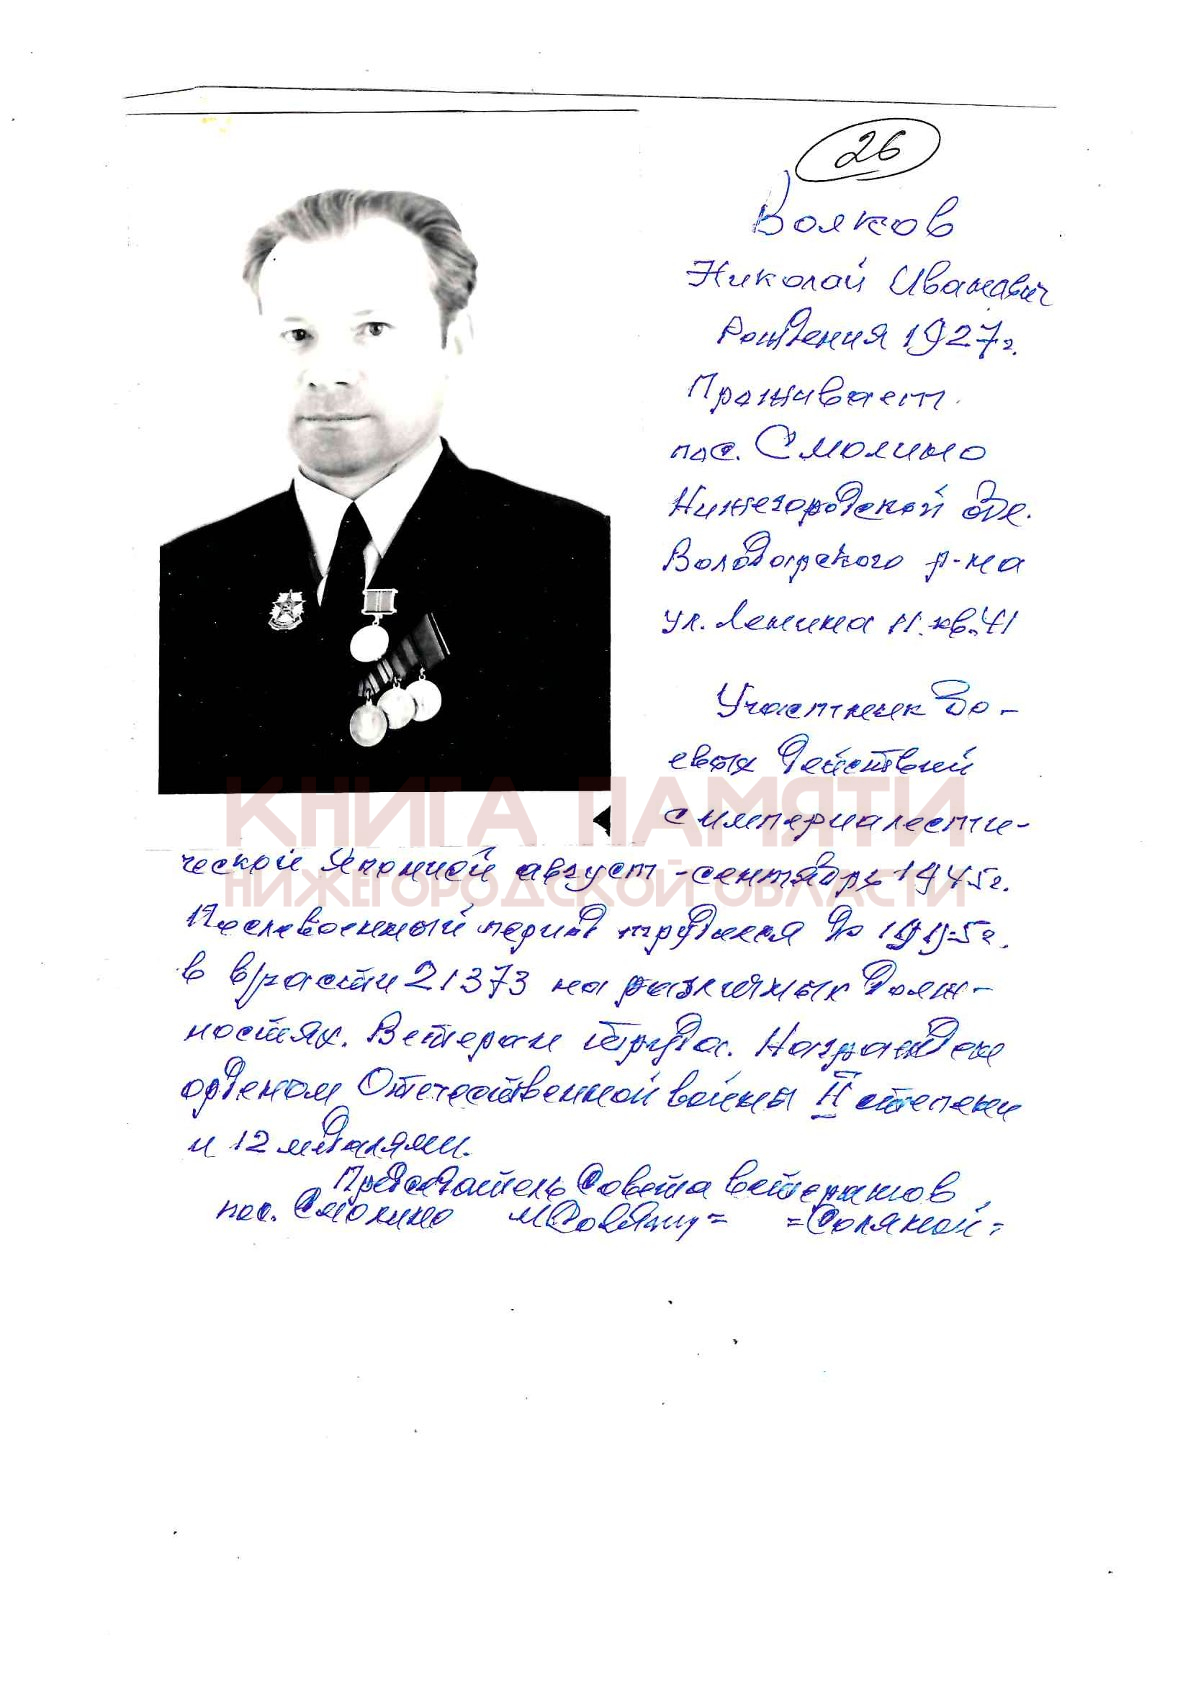 26
Волков
Николай Иванович
Рождения 1927г.
Проживает
пос. Смолино
Нижегородской обл.
Володарского р-на
ул. Ленина 11. кв. 41
Участник бо-
евых действий
с империалести-
КНИГА ПАМЯТИ
ческой Японией август-сентябрь 1945г.
НИЖЕГОРОДСКОЙ ОБЛАСТИ
Послевоенный период трудился до
в в/части 21373 на различных долж-
ностях. Ветеран труда. Награжден
орденом Отечественной войны II степени
и 12 медалями.
Председатель Совета ветеранов
пос. Смолино =Соляной=